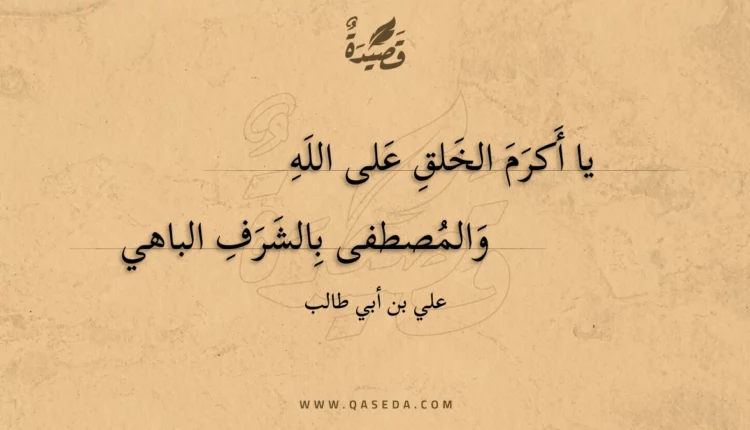 قَصِيْدَةٌ
يا أَكرَمَ الخَلقِ عَلى اللَهِ
وَالمُصطَفى بِالشَرَفِ الباهي
علي بن أبي طالب
WWW.QASEDA.COM